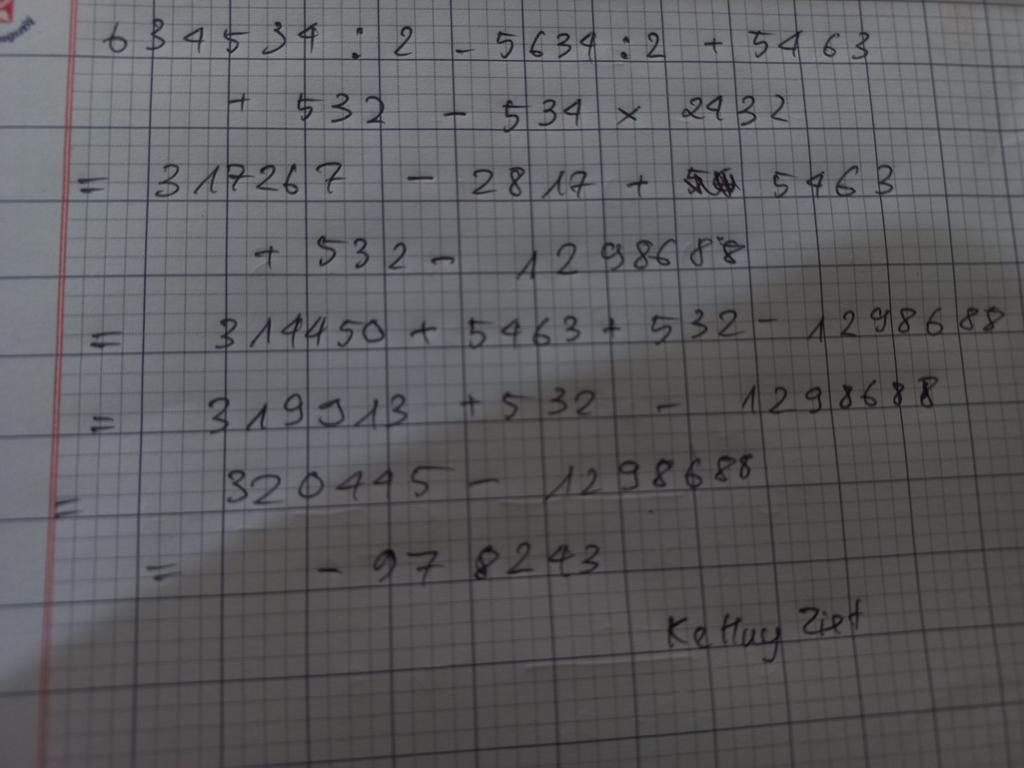 634534 : 2 - 5634 : 2 + 5463
+ 532 - 534 x 2432
= 317267 - 2817 + 5463
+ 532 - 1298688
= 314450 + 5463 + 532 - 1298688
= 319913 + 532 - 1298688
= 320445 - 1298688
= - 978243